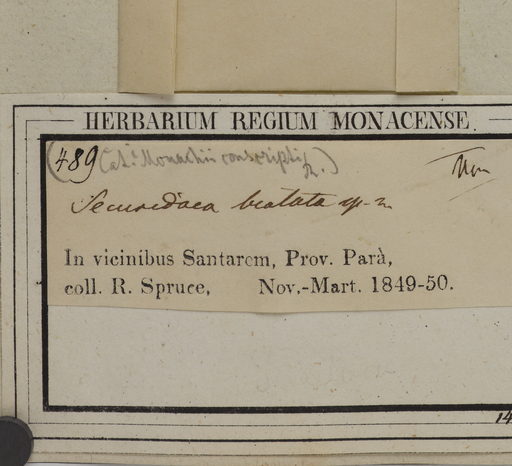 HERBARIUM REGIUM MONACENSE
(489 Cat. Monachii conscripti
Mon
Securidaca bialata sp. n
In vicinibus Santarem, Prov. Parà,
coll. R. Spruce, Nov.-Mart. 1849-50.
14